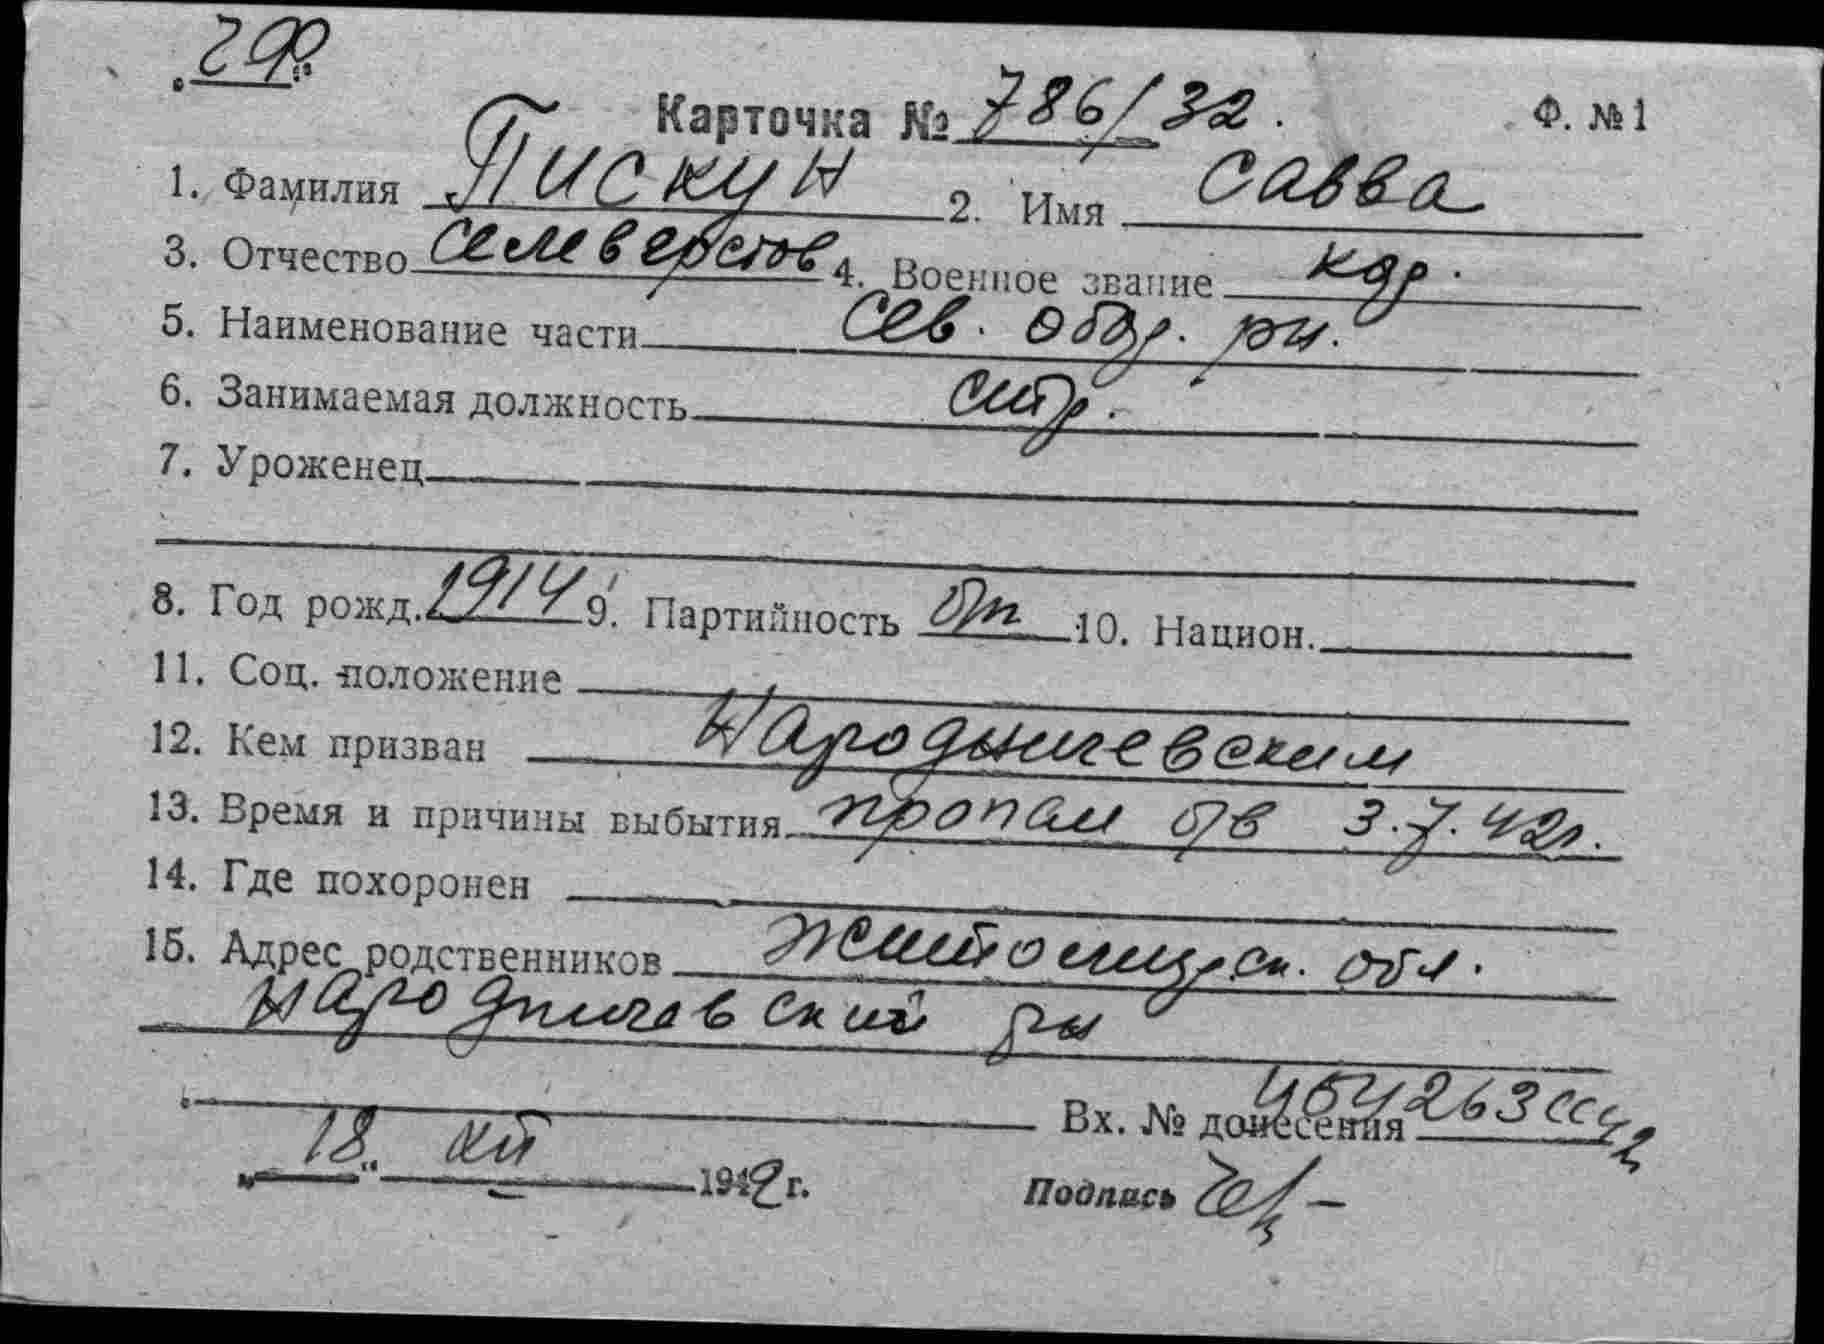 Карточка № 786/32. Ф. № 1
1. Фамилия Пискун 2. Имя Савва
3. Отчество Селеверстов 4. Военное звание кдр.
5. Наименование части Сев. обор. рн.
6. Занимаемая должность стр.
7. Уроженец
8. Год рожд. 1914 9. Партийность б/п 10. Национ.
11. Соц. положение
12. Кем призван Народническим
13. Время и причины выбытия пропал б/в 3.7.42г.
14. Где похоронен
15. Адрес родственников Житомирск. обл.
Народничевский рн
Вх. № донесения 454263сс42
„18“ XII 1942 г. Подпись